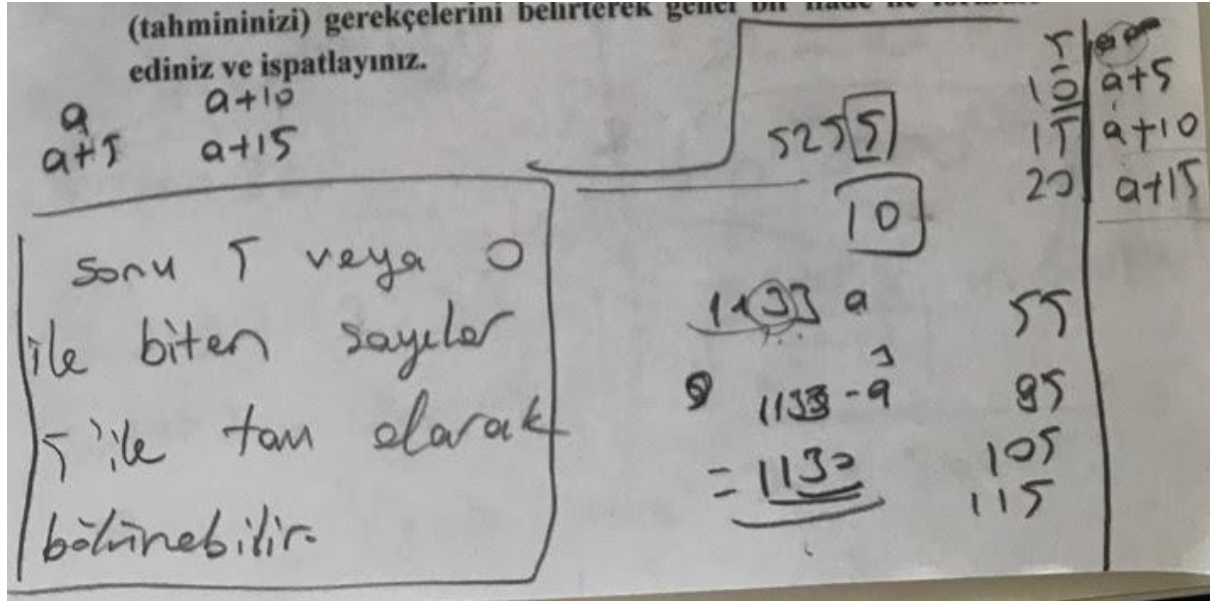 (tahmininizi) gerekçelerini belirterek genel bir ifade ile
ediniz ve ispatlayınız.
a a+10
a+5 a+15
sonu 5 veya 0
ile biten sayılar
5 ile tam olarak
bölünebilir.
5255
10
1133 a
1133-a
3
= 1130
5
10 a+5
15 a+10
20 a+15
55
95
105
115